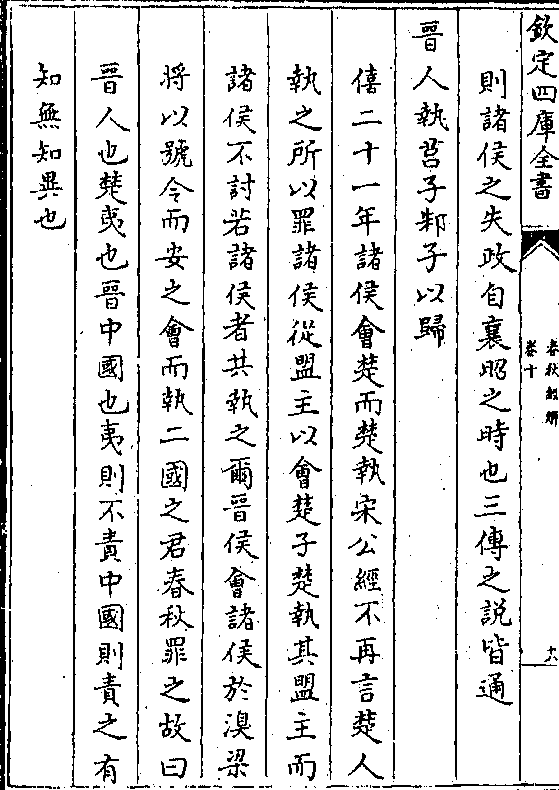 欽定四庫全書
春秋經解
卷十
十八
則諸侯之失政自襄昭之時也三傳之説皆通
晉人執莒子邾子以歸
僖二十一年諸侯會楚而楚執宋公經不再言楚人
執之所以罪諸侯從盟主以會楚子楚執其盟主而
諸侯不討若諸侯者共執之爾晉侯會諸侯於湨梁
將以號令而安之會而執二國之君春秋罪之故曰
晉人也楚夷也晉中國也夷則不責中國則責之有
知無知異也